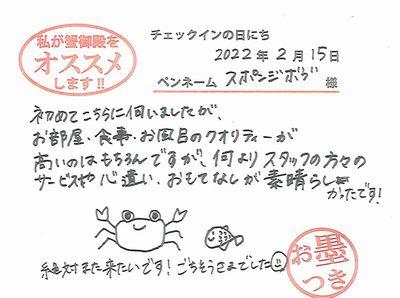 私が蟹御殿を
オススメ
します!!
チェックインの日にち
2022年2月15日
ペンネーム スポンジボブ 様
初めてこちらに伺いましたが、
お部屋・食事・お風呂のクオリティーが
高いのはもちろんですが、何よりスタッフの方々の
サービスや心遣い、おもてなしが素晴らし
かったです!
絶対また来たいです!ごちそうさまでした
お墨
つき